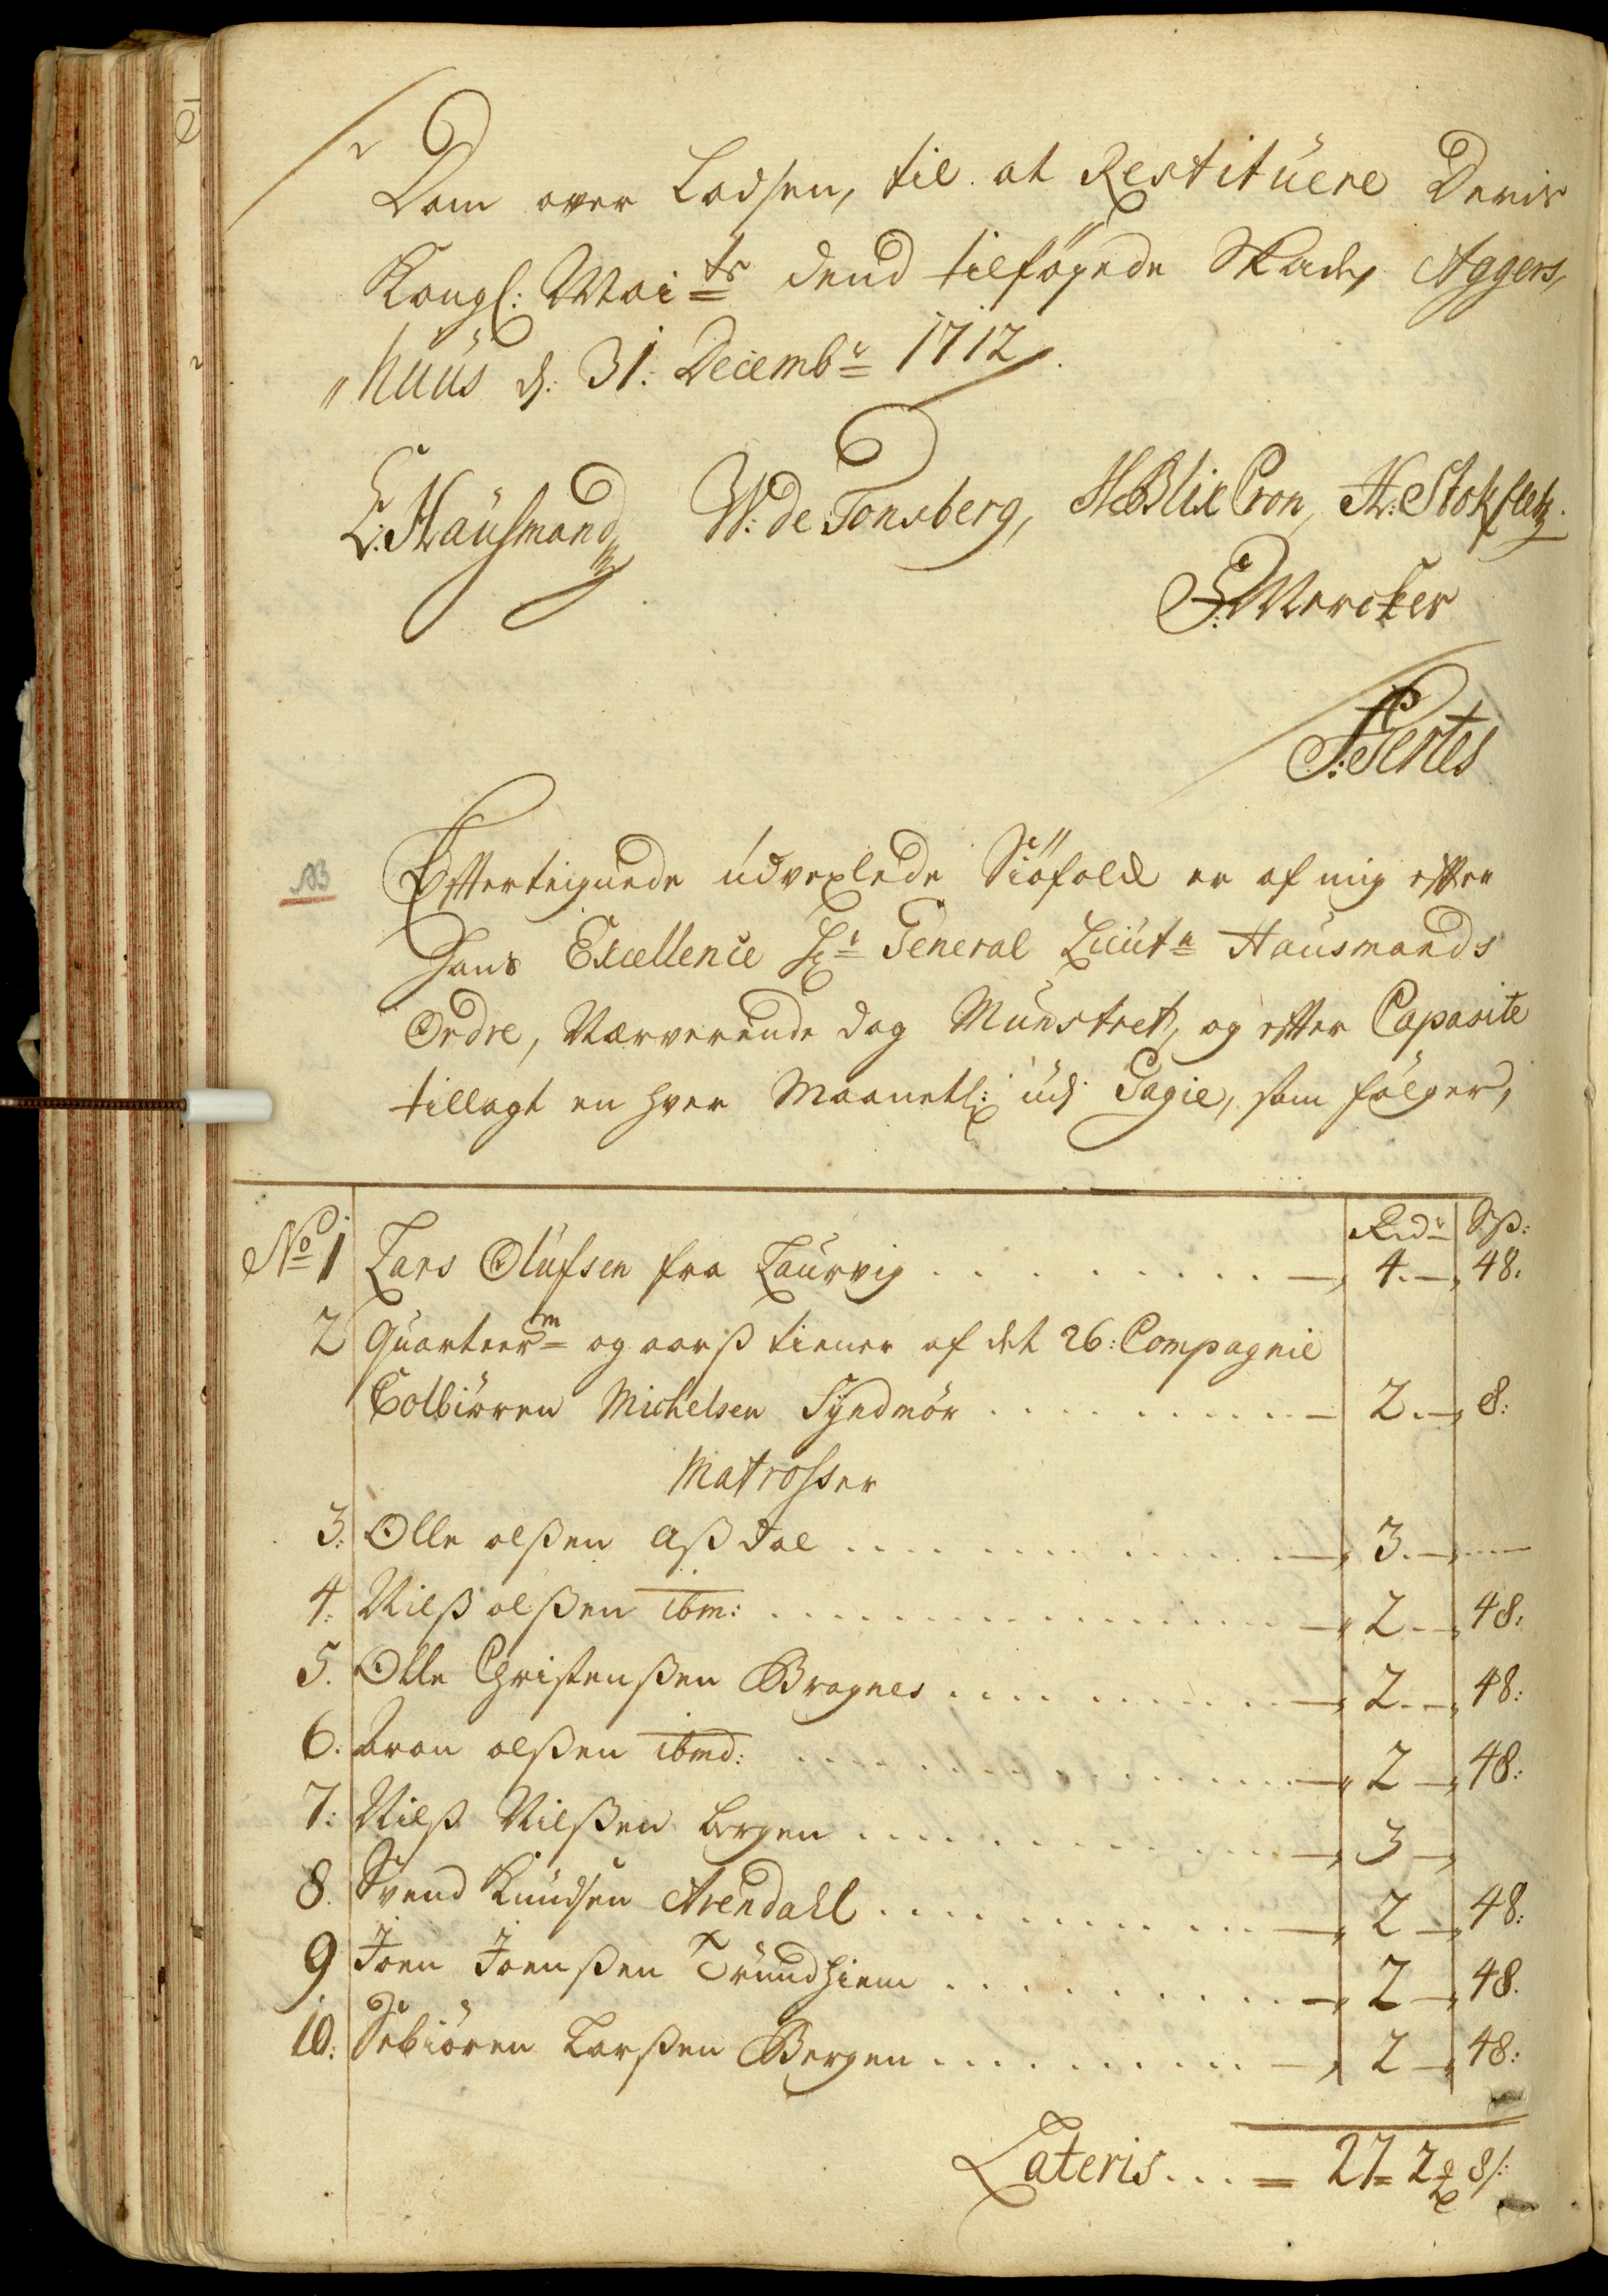 Dom over Lodsen, til at Restituere Deris
Kongl: Mai<sup>ts</sup> dend tilföyede Skade, Aggers,
„huus d: 31: Decemb<sup>r</sup> 1712.
C: Hausmand, W: de Tonsberg, HBlix Pron, H: Stokfletz.
S: Mercker
P: Pertes
NB
Effterteignede udvexlede Siöfolk er af mig effter
Hans Excellence H<sup>r</sup> General Lieut<sup>n</sup> Hausmands
Ordre, Nærverende dag Munstret, og effter Capasite
tillagt en hver Maanetl: udj Gagie, som fölger,
Rd<sup>r</sup> Sß:
No 1 Lars Olufsen fra Laurvig . . . . . . . . 4. — 48:
2 Quarteer<sup>m</sup> og aarß tiener af det 26: Compagnie
Colbiören Michelsen Syndmör . . . . . . . . 2. — 8:
Matrosser
3: Olle olßen Aßdal . . . . . . . . 3. —
4: Nilß olßen ibm: . . . . . . . . 2. — 48:
5. Olle Christenßen Bragnes . . . . . . . . 2. — 48:
6: Aron olßen ibmd: . . . . . . . . 2 — 48:
7: Nilß Nilßen bergen . . . . . . . . 3 —
8. Svend Knudsen Arendahl . . . . . . . . 2 — 48:
9 Joen Joenßen Trundhiem . . . . . . . . 2 — 48.
10: Sebiören Larßen Bergen . . . . . . . . 2 — 48:
Lateris . . . = 27 = 2 8/: